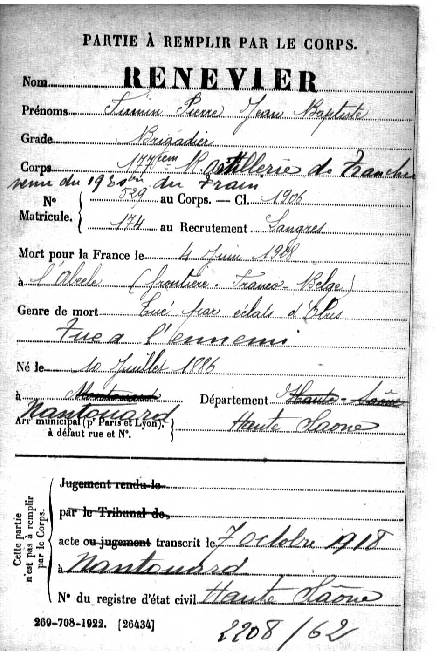 PARTIE À REMPLIR PAR LE CORPS.
Nom RENEVIER
Prénoms Firmin Pierre Jean Baptiste
Grade Brigadier
Corps 177ème Rt Artillerie de Tranchée
venu du 19 Eson du Train
N° 529 au Corps. — Cl. 1906
Matricule. 174 au Recrutement Langres
Mort pour la France le 4 Juin 1918
à l'Abeele (frontière Franco-Belge)
Genre de mort Tué par éclats d'Obus
Tué à l'ennemi
Né le 10 Juillet 1886
à Nantouard Département Haute-Saône
Nantouard
Arr municipal (pr Paris et Lyon), à défaut rue et N°. Haute Saône
Cette partie n'est pas à remplir par le Corps.
Jugement rendu le
par le Tribunal de
acte ou jugement transcrit le 7 octobre 1918
à Nantouard
N° du registre d'état civil Haute Saône
269-708-1922. [26434]
2208/62